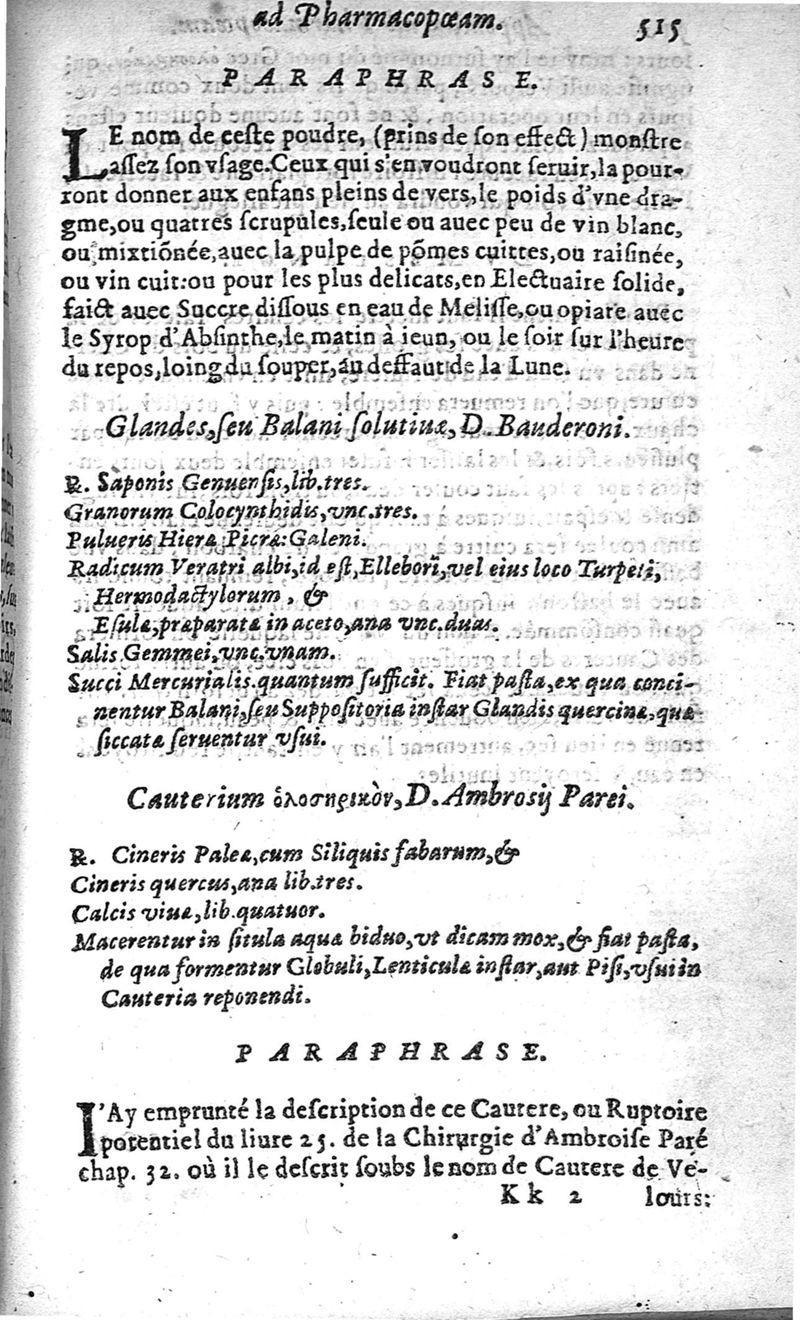 ad Pharmacopœam. 515
PARAPHRASE.
LE nom de ceste poudre, (prins de son effect) monstre
assez son vsage. Ceux qui s'en voudront seruir, la pour-
ront donner aux enfans pleins de vers, le poids d'vne dra-
gme, ou quatres scrupules, seule ou auec peu de vin blanc,
ou mixtiõnée, auec la pulpe de põmes cuittes, ou raisinée,
ou vin cuit: ou pour les plus delicats, en Electuaire solide,
faict auec Succre dissous en eau de Melisse, ou opiate auec
le Syrop d'Absinthe, le matin à ieun, ou le soir sur l'heure
du repos, loing du souper, au deffaut de la Lune.
Glandes, seu Balani solutiuæ, D. Bauderoni.
℞. Saponis Genuensis, lib. tres.
Granorum Colocynthidis, vnc. tres.
Pulueris Hieræ Picræ: Galeni.
Radicum Veratri albi, id est, Ellebori, vel eius loco Turpeti,
Hermodactylorum, &
Esulæ, præparatæ in aceto, ana vnc. duas.
Salis Gemmei, vnc. vnam.
Succi Mercurialis. quantum sufficit. Fiat pasta, ex qua conci-
nentur Balani, seu Suppositoria instar Glandis quercinæ, quæ
siccatæ seruentur vsui.
Cauterium ὁλοσηρικὸν, D. Ambrosij Parei.
℞. Cineris Paleæ, cum Siliquis fabarum, &
Cineris quercus, ana lib. tres.
Calcis viuæ, lib. quatuor.
Macerentur in situla aquæ biduo, vt dicam mox, & fiat pasta,
de qua formentur Globuli, Lenticulæ instar, aut Pisi, vsui in
Cauteria reponendi.
PARAPHRASE.
I'Ay emprunté la description de ce Cautere, ou Ruptoire
potentiel du liure 25. de la Chirurgie d'Ambroise Paré
chap. 32. où il le descrit soubs le nom de Cautere de Ve-
Kk 2 lours: